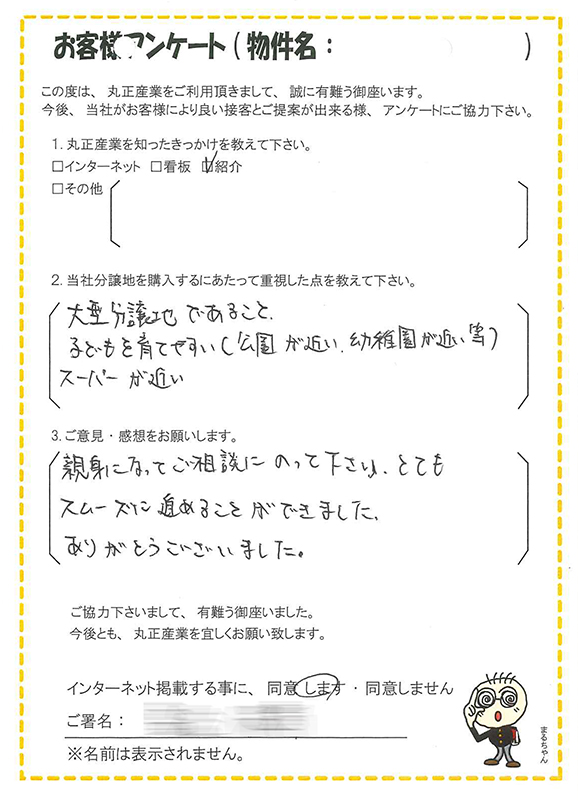 お客様アンケート(物件名：　　　)
この度は、丸正産業をご利用頂きまして、誠に有難う御座います。
今後、当社がお客様により良い接客とご提案が出来る様、アンケートにご協力下さい。
1．丸正産業を知ったきっかけを教えて下さい。
□インターネット □看板 ☑紹介
□その他
2．当社分譲地を購入するにあたって重視した点を教えて下さい。
大型分譲地であること、
子どもを育てやすい(公園が近い、幼稚園が近い等)
スーパーが近い
3．ご意見・感想をお願いします。
親身になってご相談にのって下さい、とても
スムーズに進めることができました、
ありがとうございました。
ご協力下さいまして、有難う御座いました。
今後とも、丸正産業を宜しくお願い致します。
インターネット掲載する事に、同意します・同意しません
ご署名：
※名前は表示されません。
まるちゃん